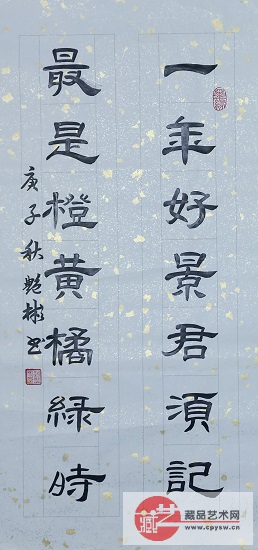 一年好景君須記
最是橙黄橘緑時
庚子秋艷彬書
藏艺
藏品艺术网
www.cpysw.cn